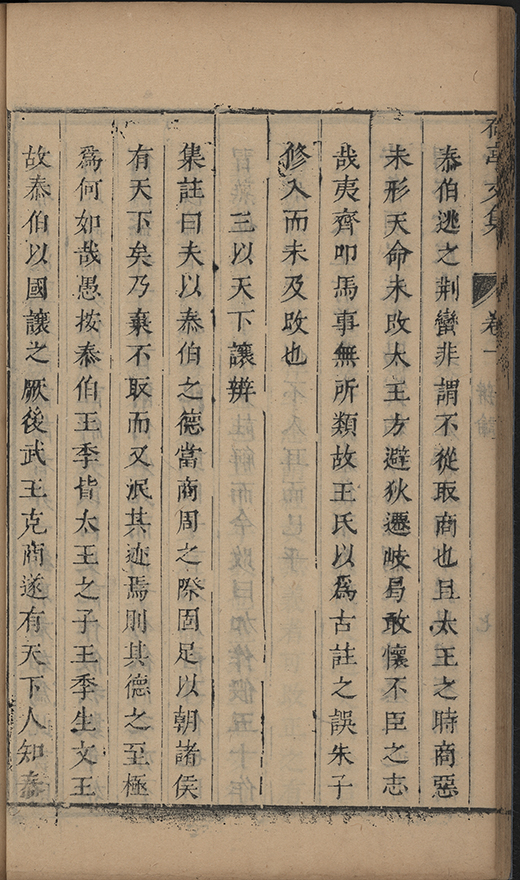 文集 卷一
泰伯逃之荆蠻非謂不從取商也且太王之時商惡
未形天命未改太王方避狄遷岐曷敢懷不臣之志
哉夷齊叩馬事無所類故王氏以爲古註之誤朱子
修入而未及改也
三以天下讓辨
集註曰夫以泰伯之德當商周之際固足以朝諸侯
有天下矣乃棄不取而又泯其迹焉則其德之至極
爲何如哉愚按泰伯王季皆太王之子王季生文王
故泰伯以國讓之厥後武王克商遂有天下人知泰